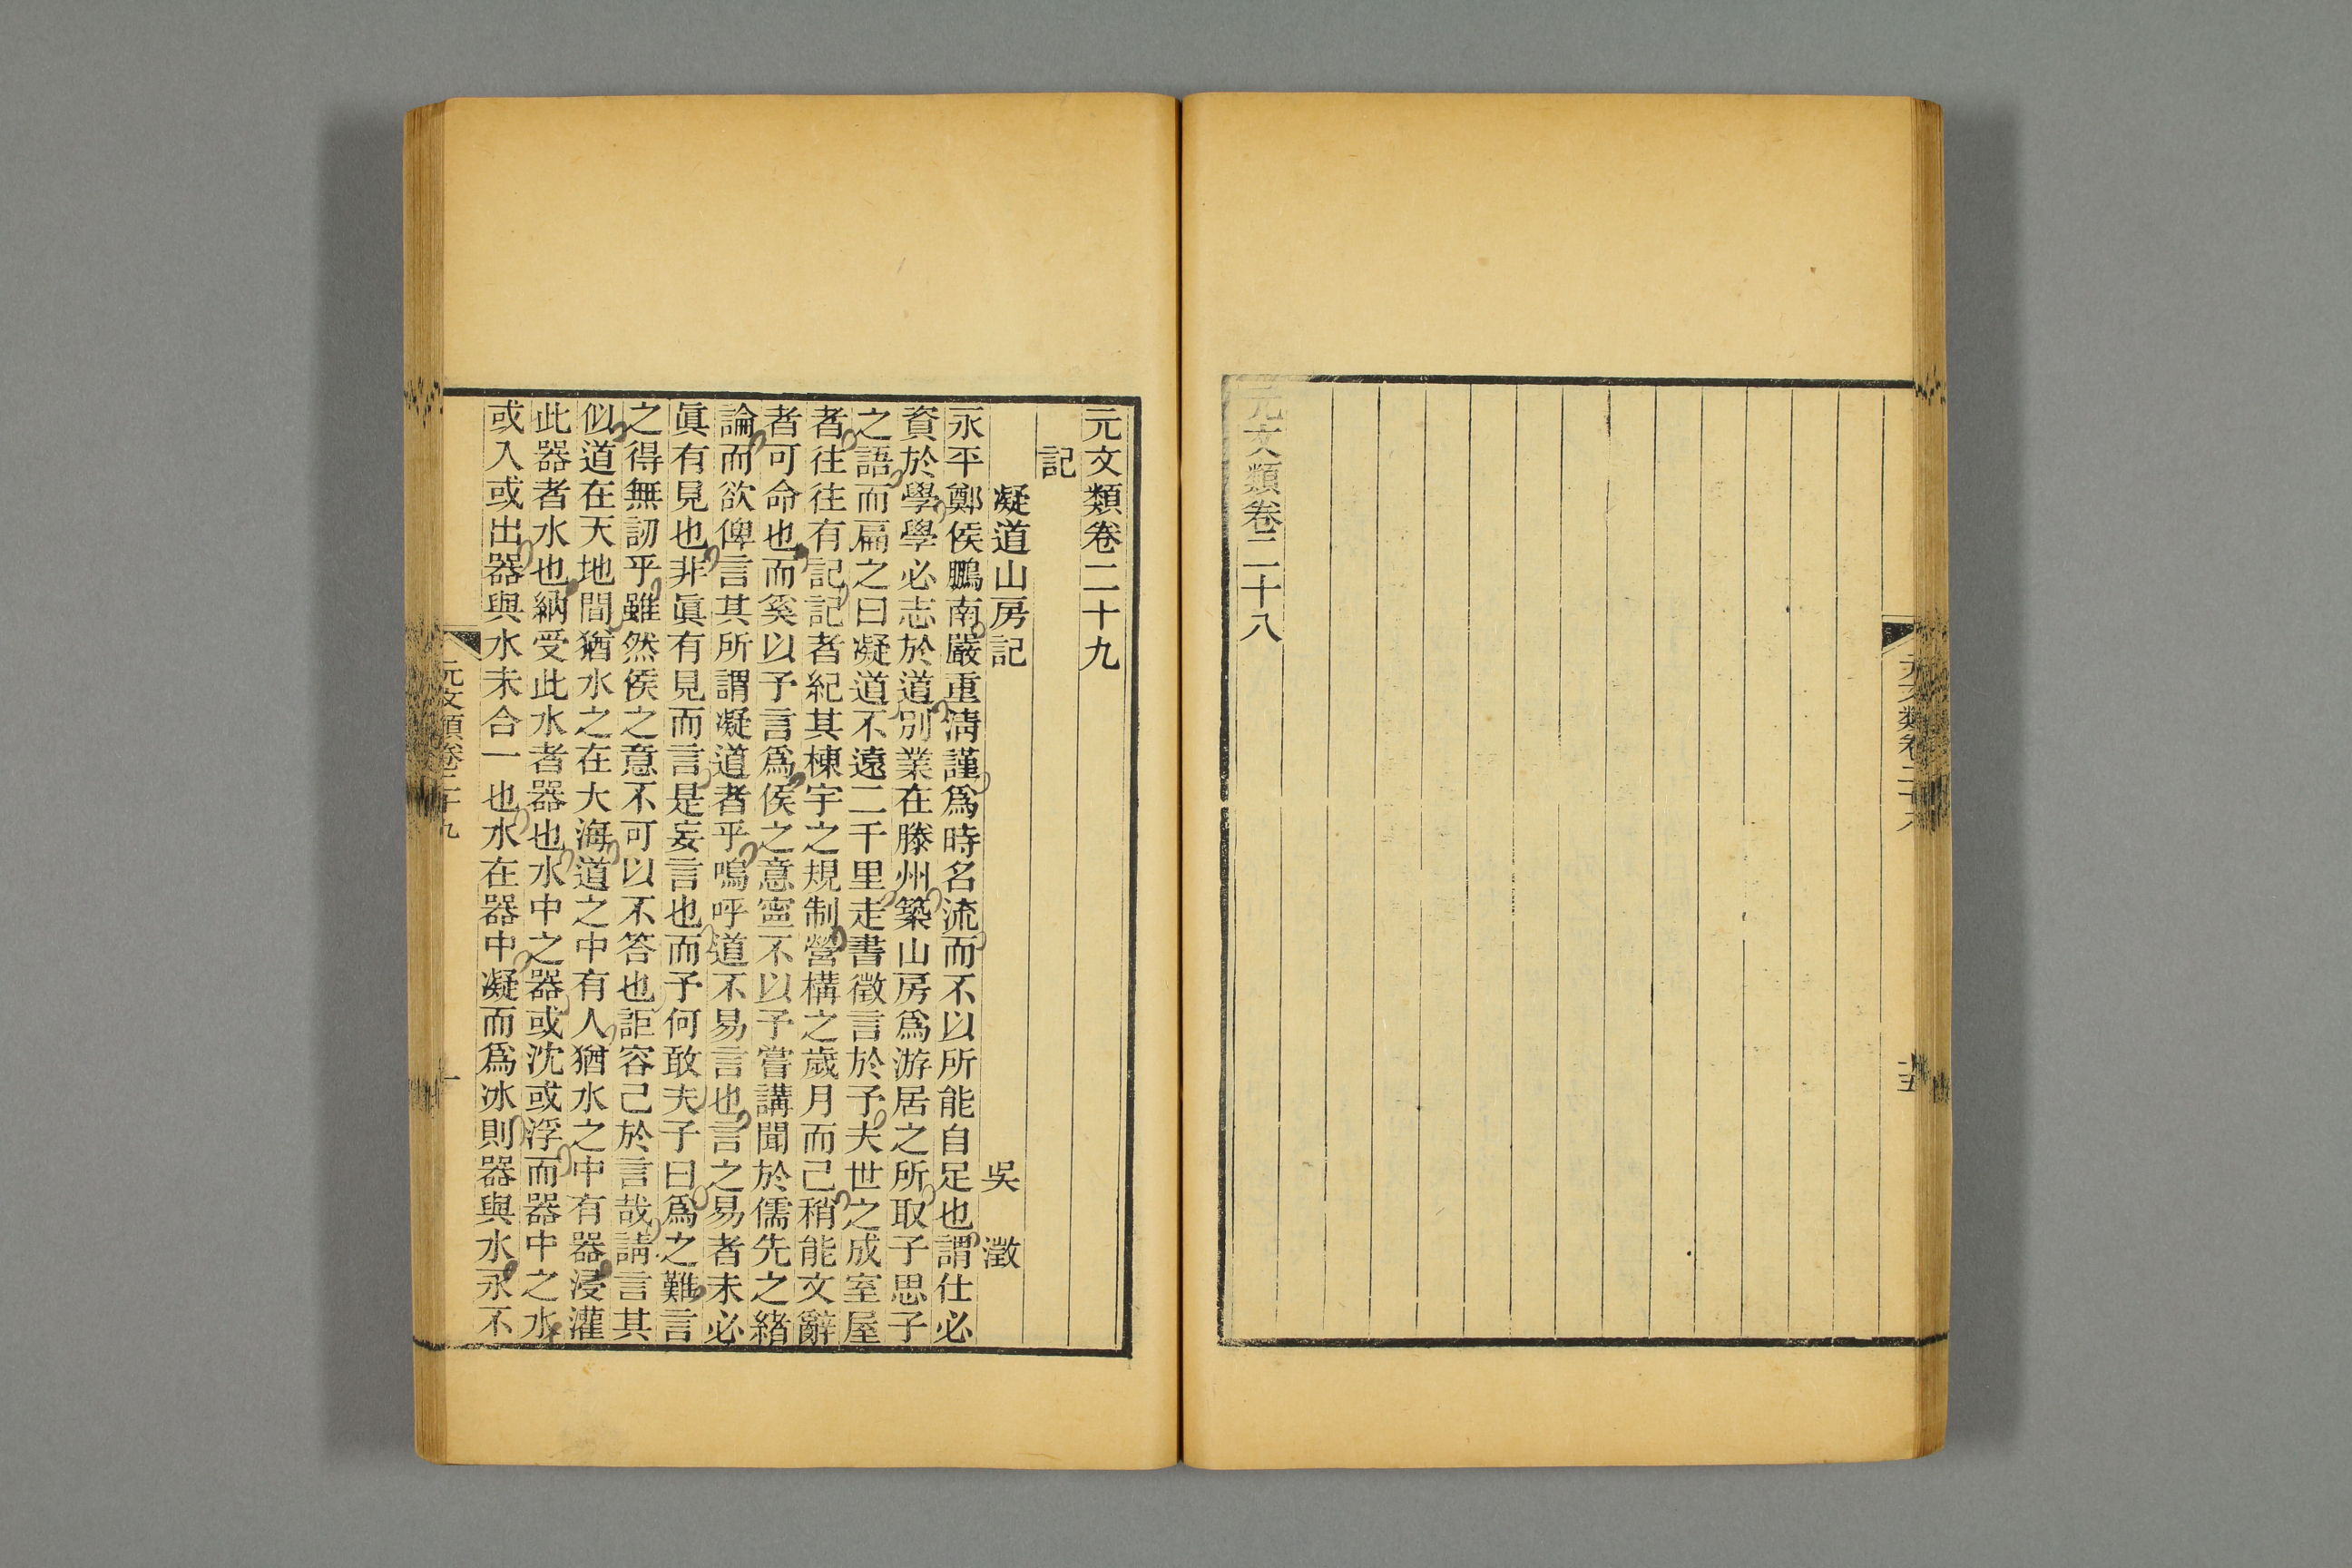 元文類卷二十八
十五
元文類卷二十八
元文類卷二十九
記
凝道山房記
吳澂
永平鄭侯鵬南嚴重淸謹爲時名流而不以所能自足也謂仕必
資於學學必志於道別業在滕州築山房爲游居之所取子思子
之語而扁之曰凝道不遠二千里走書徵言於予夫世之成室屋
者往往有記記者紀其棟宇之規制營構之歲月而己稍能文辭
者可命也而奚以予言爲侯之意寧不以予嘗講聞於儒先之緒
論而欲俾言其所謂凝道者乎鳴呼道不易言也言之易者未必
眞有見也非眞有見而言是妄言也而予何敢夫子曰爲之難言
之得無訒乎雖然侯之意不可以不答也詎容己於言哉請言其
似道在天地間猶水之在大海道之中有人猶水之中有器浸灌
此器者水也納受此水者器也水中之器或沈或浮而器中之水
或入或出器與水未合一也水在器中凝而爲冰則器與水永不
元文類卷二十九
一